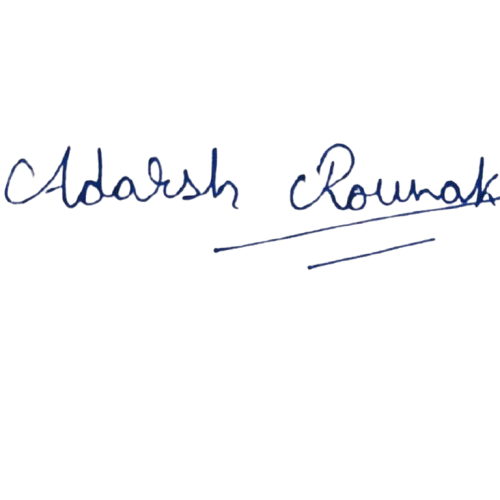 Adarsh Rounak